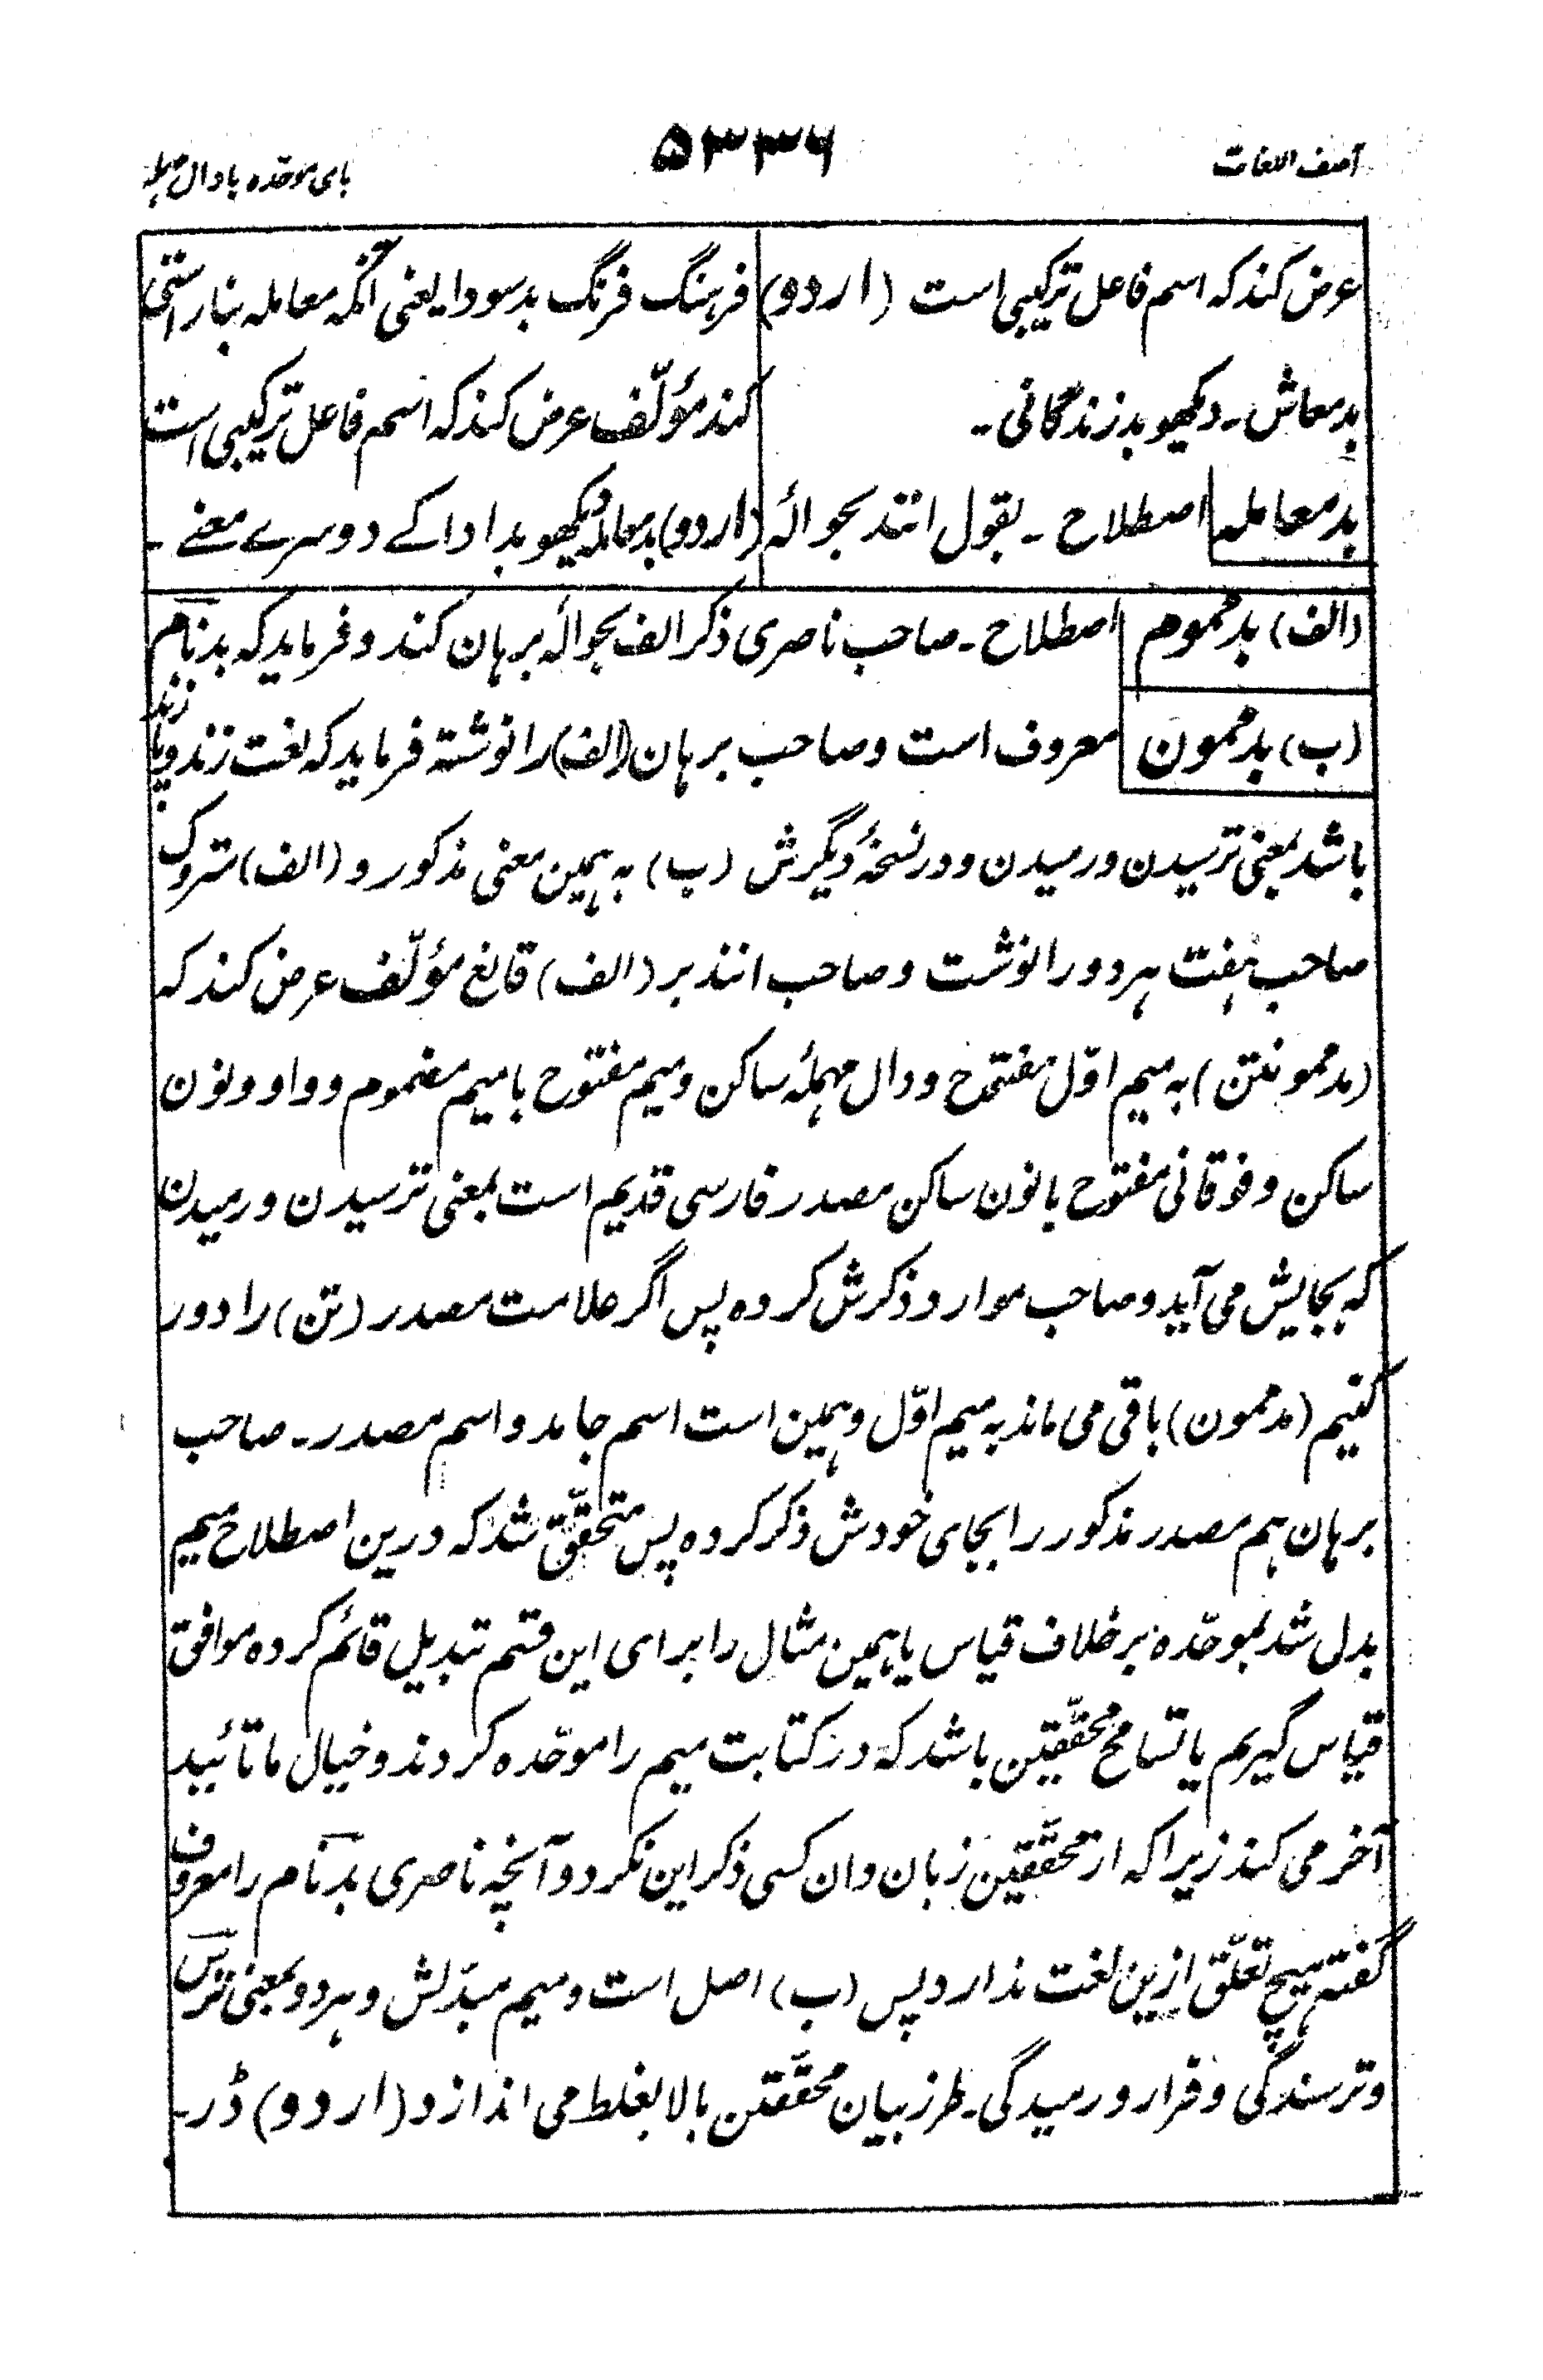 آصف اللغات
۵۳۳۶
بای موحّده با دال مهمله
عرض کند که اسم فاعل ترکیبی است (اردو)
بدمعاش۔ دیکھو بدزندگانی۔
بدمعامله اصطلاح۔ بقول انند بحوالهٔ
فرہنگ فرنگ بدسودا یعنی آنکه معامله بناراستی
کند مؤلّف عرض کند که اسم فاعل ترکیبی است
(اردو) بدمعاملہ دیکھو بد ادا کے دوسرے معنے۔
(الف) بدمموم اصطلاح۔ صاحب ناصری ذکر الف بحوالهٔ برہان کند و فرماید که بدنام
(ب) بدممون معروف است و صاحب برہان (الف) را نوشته فرماید که لغت زند و پازند
باشد بمعنی ترسیدن و رمیدن و در نسخهٔ دیگرش (ب) به ہمین معنی مذکور و (الف) متروک
صاحب ہفت ہر دو را نوشت و صاحب انند بر (الف) قانع مؤلّف عرض کند که
(مدممونتن) به میم اوّل مفتوح و دال مہملهٔ ساکن و میم مفتوح با میم مضموم و واو و نون
ساکن و فوقانی مفتوح با نون ساکن مصدر فارسی قدیم است بمعنی ترسیدن و رمیدن
که بجایش می آید و صاحب موارد ذکرش کرده پس اگر علامت مصدر (تن) را دور
کنیم (مدممون) باقی می ماند به میم اوّل و ہمین است اسم جامد و اسم مصدر۔ صاحب
برہان ہم مصدر مذکور را بجای خودش ذکر کرده پس متحقّق شد که درین اصطلاح میم
بدل شد بموحّده برخلاف قیاس یا ہمین مثال را برای این قسم تبدیل قائم کرده موافق
قیاس گیریم یا تسامح محقّقین باشد که در کتابت میم را موحّده کردند و خیال ما تائید
آخر می کند زیرا که از محقّقین زبان دان کسی ذکر این نکرد و آنچه ناصری بدنام را معروف
گفته ہیچ تعلّق ازین لغت ندارد پس (ب) اصل است و میم مبدّلش و ہر دو بمعنی ترس
و ترسندگی و فرار و رمیدگی۔ طرز بیان محقّقین بالا بغلط می اندازد (اردو) ڈر۔